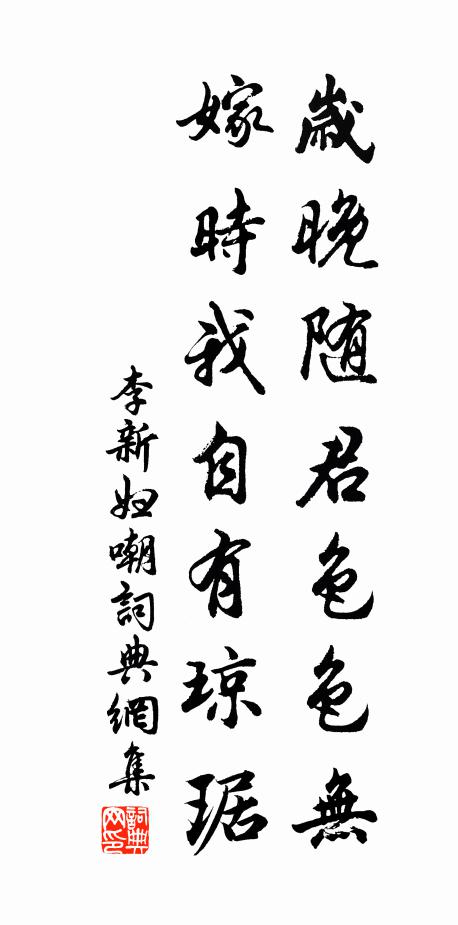 歲晚随君色色無
嫁時我自有琼琚
李新妞嘲詞典網集
詞典
网印